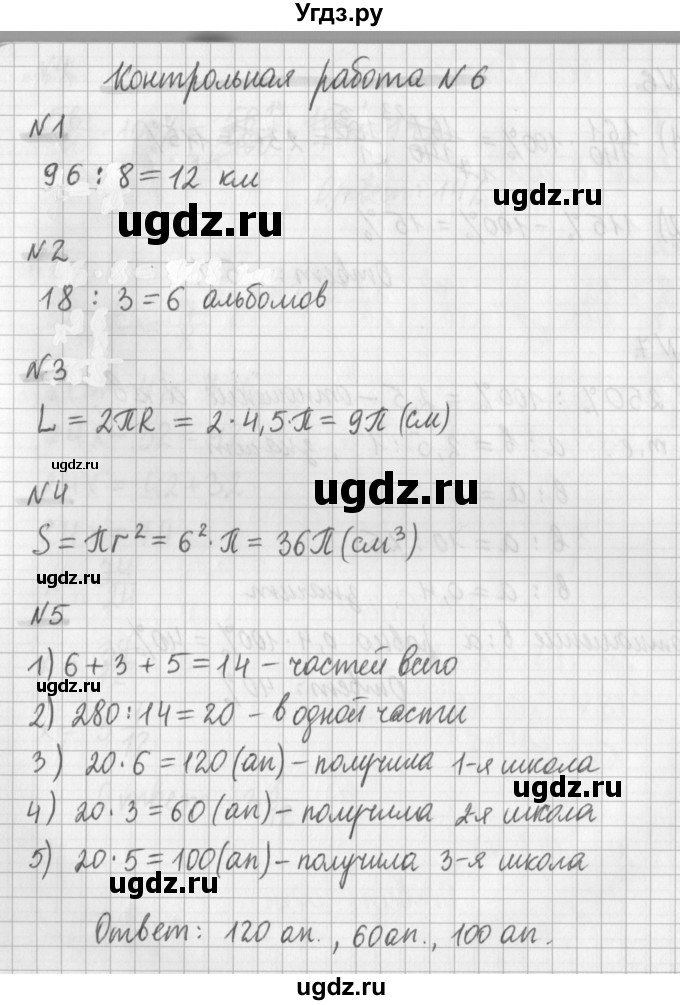 Угдз.ру
Контрольная работа №6
№1
96 : 8 = 12 км
ugdz.ru
№2
18 : 3 = 6 альбомов
№3
L = 2πR = 2·4,5·π = 9π (см)
ugdz.ru
ugdz.ru
№4
S = πr² = 6²·π = 36π (см³)
ugdz.ru
№5
1) 6 + 3 + 5 = 14 – частей всего
2) 280 : 14 = 20 – в одной части
3) 20·6 = 120 (ап) – получила 1-я школа
ugdz.ru
4) 20·3 = 60 (ап) – получила 2-я школа
5) 20·5 = 100 (ап) – получила 3-я школа
ugdz.ru
Ответ: 120 ап., 60 ап., 100 ап.
ugdz.ru